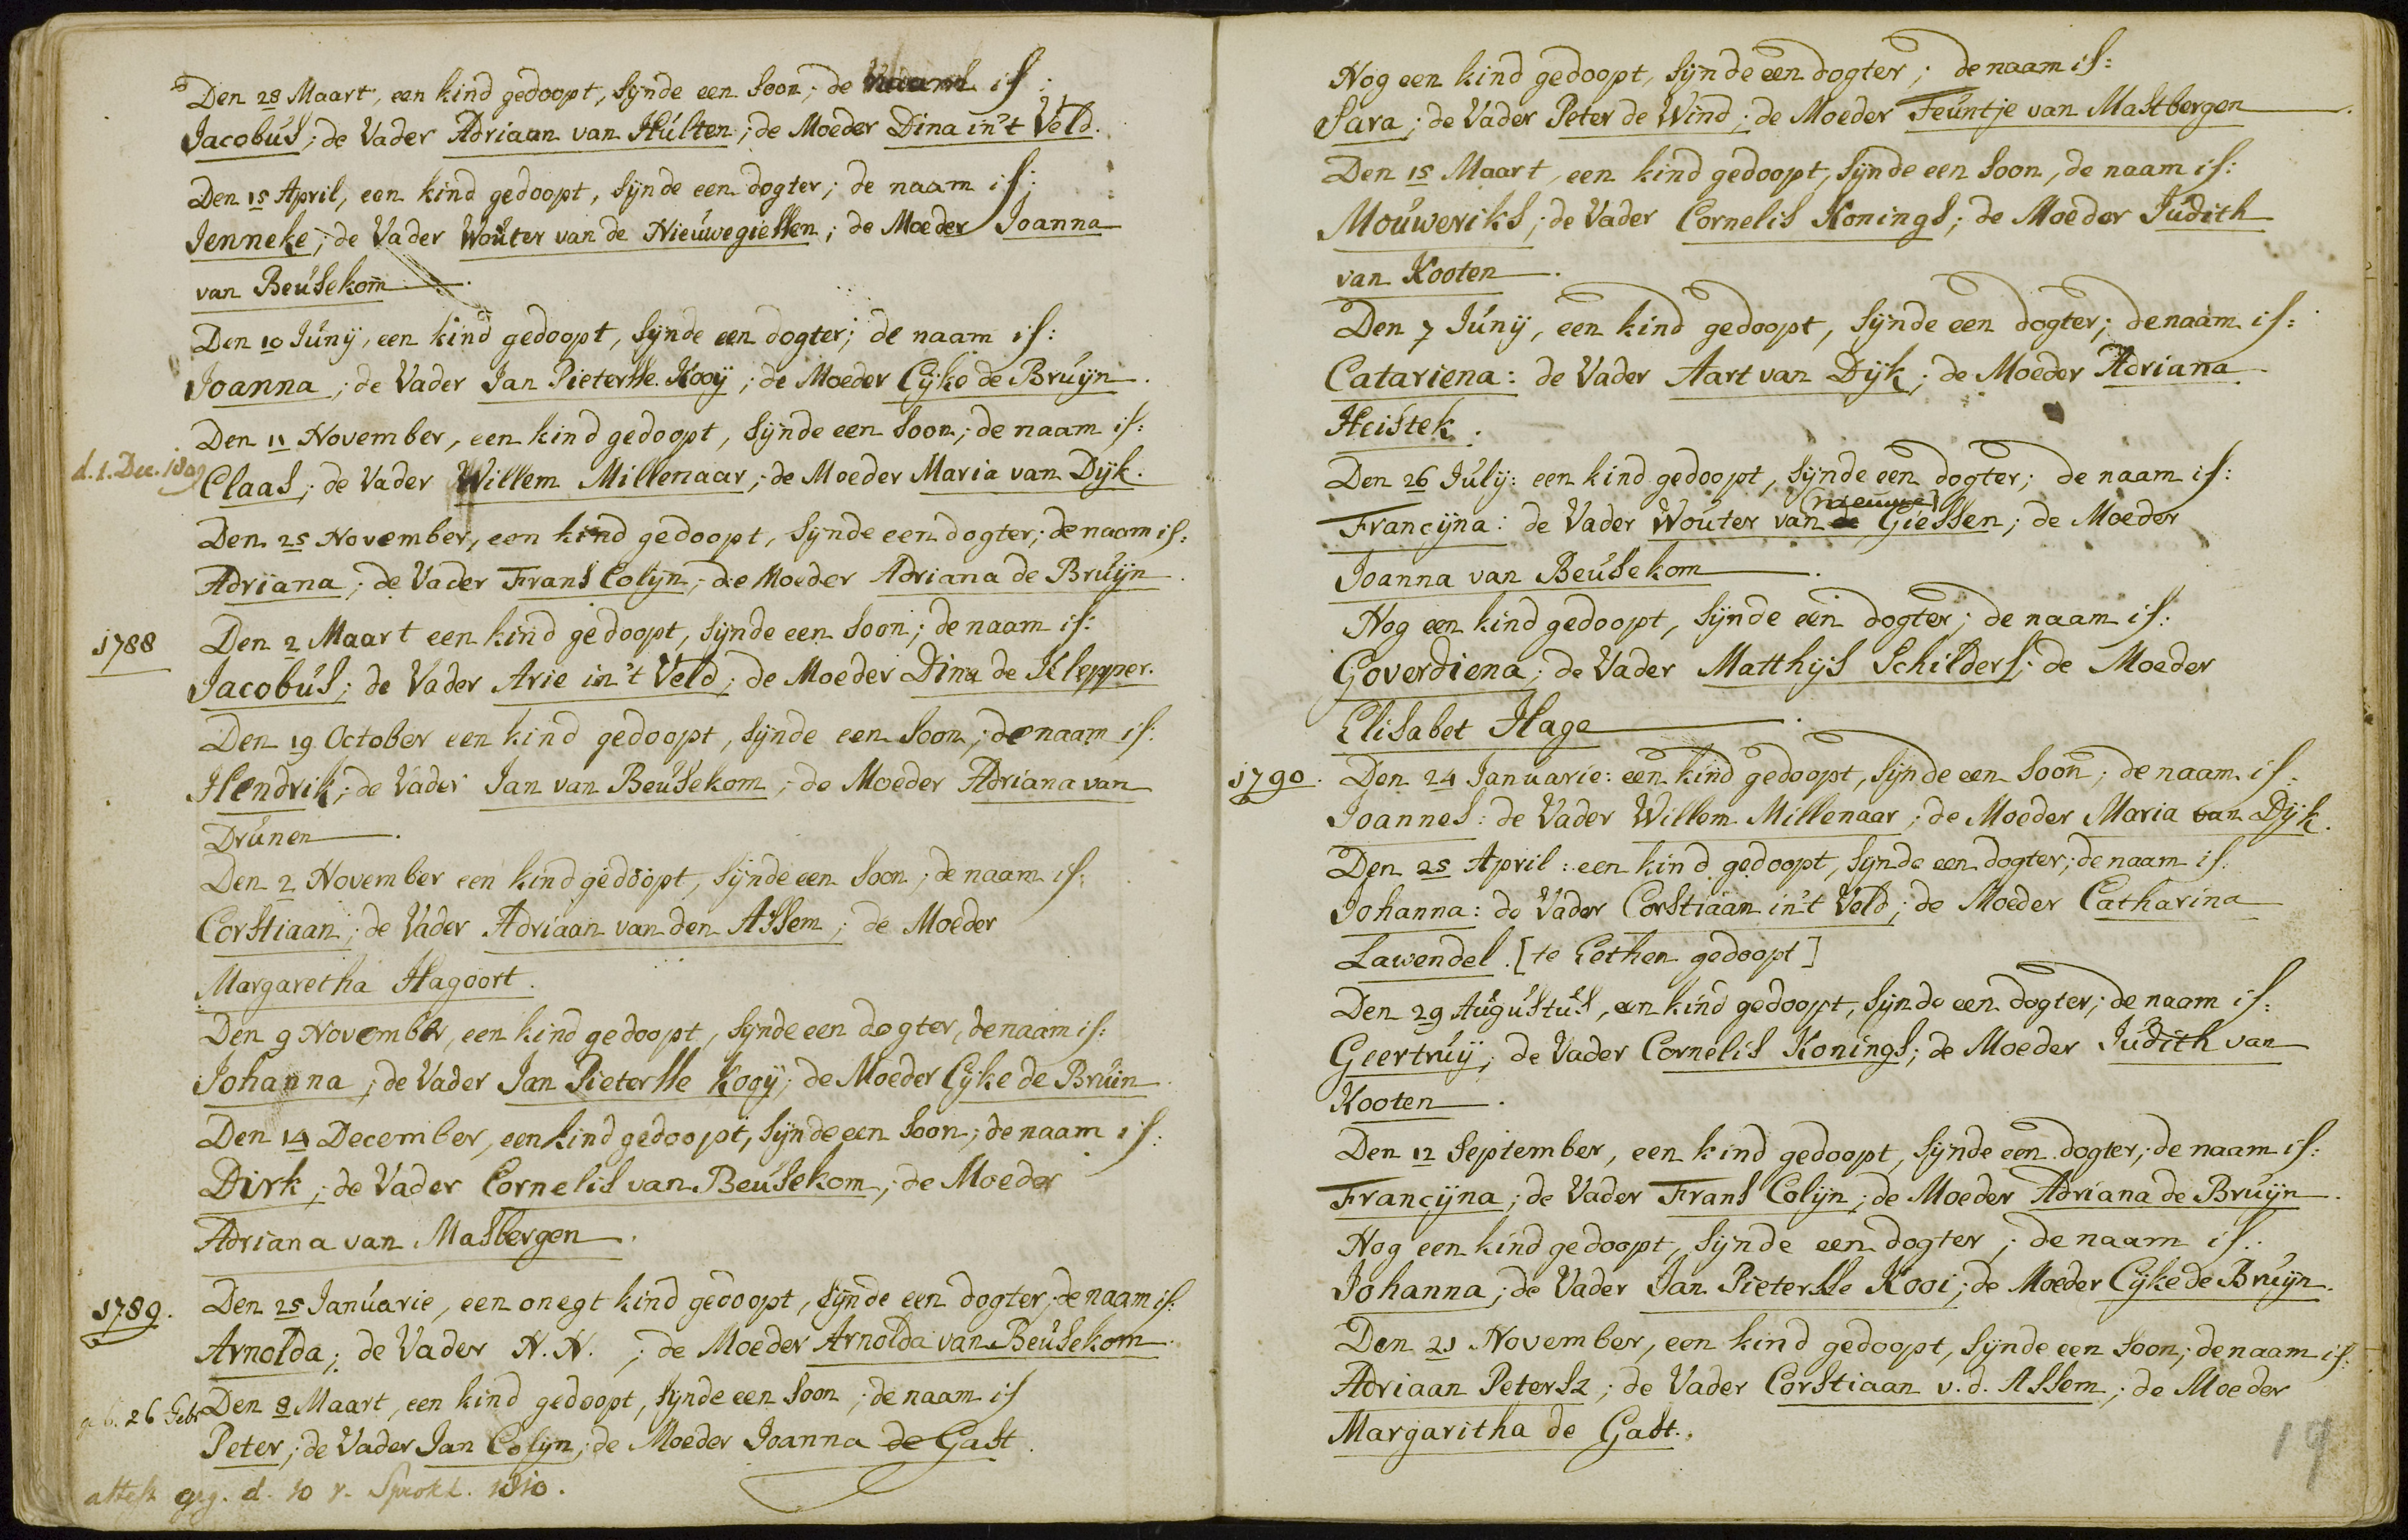 Den 28 Maart, een kind gedoopt, sijnde een soon; de naam is:
Jacobus; de Vader Adriaan van Hulten; de Moeder Dina in't Veld.
Den 15 April, een kind gedoopt, sijnde een dogter; de naam is:
Jenneke; de Vader Wouter van de Nieuwegiessen; de Moeder Joanna
van Beusekom.
Den 10 Junij, een kind gedoopt, sijnde een dogter; de naam is:
Joanna; de Vader Jan Pietersse Kooij; de Moeder Cijke de Bruijn.
Den 11 November, een kind gedoopt, sijnde een soon; de naam is:
d. 1. Dec. 1809
Claas; de Vader Willem Millenaar; de Moeder Maria van Dijk.
Den 25 November, een kind gedoopt, sijnde een dogter; de naam is:
Adriana; de Vader Frans Colijn; de Moeder Adriana de Bruijn.
1788 Den 2 Maart een kind gedoopt, sijnde een soon; de naam is:
Jacobus; de Vader Arie in't Veld; de Moeder Dina de Klepper.
Den 19 October een kind gedoopt, sijnde een soon; de naam is:
Hendrik; de Vader Jan van Beusekom; de Moeder Adriana van
Drunen.
Den 2 November een kind gedoopt, sijnde een soon; de naam is:
Corstiaan; de Vader Adriaan van den Assem; de Moeder
Margaretha Hagoort.
Den 9 November, een kind gedoopt, sijnde een dogter, de naam is:
Johanna; de Vader Jan Pietersse Kooij; de Moeder Cijke de Bruin.
Den 14 December, een kind gedoopt, sijnde een soon; de naam is:
Dirk; de Vader Cornelis van Beusekom; de Moeder
Adriana van Masbergen.
1789. Den 25 Januarie, een onegt kind gedoopt, sijnde een dogter; de naam is:
Arnolda; de Vader N.N.; de Moeder Arnolda van Beusekom.
26 Febr Den 8 Maart, een kind gedoopt, sijnde een soon; de naam is
Peter; de Vader Jan Colijn; de Moeder Joanna de Gast.
attest geg. d. 10 1810.
Nog een kind gedoopt, sijnde een dogter; de naam is:
Sara; de Vader Peter de Wind; de Moeder Teuntje van Mastbergen.
Den 15 Maart, een kind gedoopt, sijnde een soon, de naam is:
Mouweriks; de Vader Cornelis Konings; de Moeder Judith
van Kooten.
Den 7 Junij, een kind gedoopt, sijnde een dogter; de naam is:
Catariena: de Vader Aart van Dijk; de Moeder Adriana
Heistek.
Den 26 Julij: een kind gedoopt, sijnde een dogter; de naam is:
nieuwe
Francijna: de Vader Wouter van de Giessen; de Moeder
Joanna van Beusekom.
Nog een kind gedoopt, sijnde een dogter; de naam is:
Goverdiena; de Vader Matthijs Schilders; de Moeder
Elisabet Hage.
1790. Den 24 Januarie: een kind gedoopt, sijnde een soon; de naam is:
Joannes: de Vader Willem Millenaar; de Moeder Maria van Dijk.
Den 25 April: een kind gedoopt, sijnde een dogter; de naam is:
Johanna: de Vader Corstiaan in't Veld; de Moeder Catharina
Lawendel. [te Eethen gedoopt]
Den 29 Augustus, een kind gedoopt, sijnde een dogter; de naam is:
Geertruij; de Vader Cornelis Konings; de Moeder Judith van
Kooten.
Den 12 September, een kind gedoopt, sijnde een dogter; de naam is:
Francijna; de Vader Frans Colijn; de Moeder Adriana de Bruijn.
Nog een kind gedoopt, sijnde een dogter; de naam is:
Johanna; de Vader Jan Pietersse Kooi; de Moeder Cijke de Bruijn.
Den 21 November, een kind gedoopt, sijnde een soon; de naam is:
Adriaan Petersz; de Vader Corstiaan v.d. Assem; de Moeder
Margaritha de Gast.
19